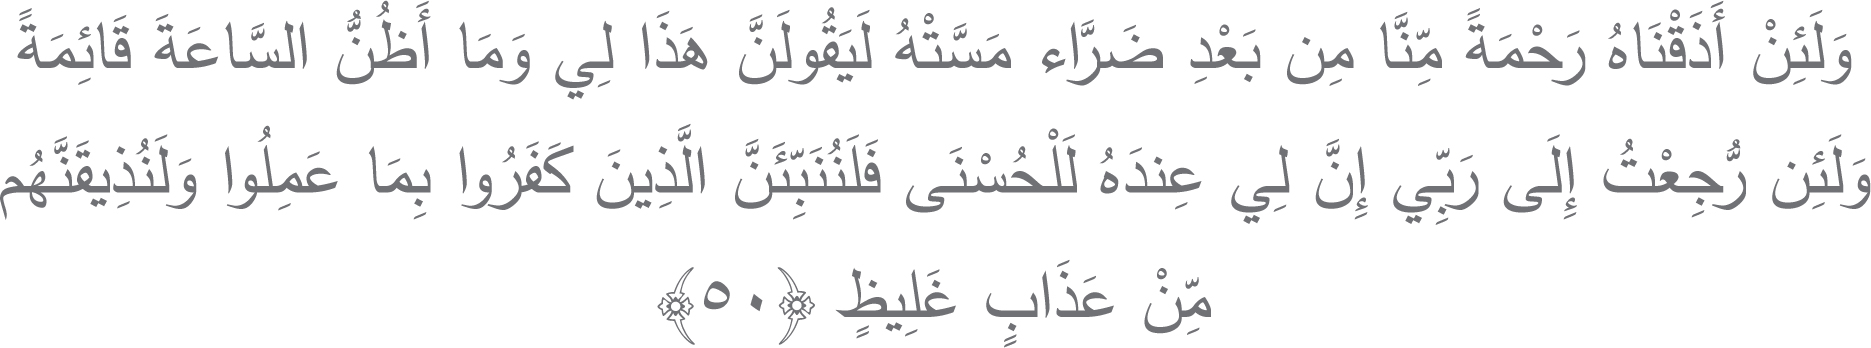 وَلَئِنْ أَذَقْنَاهُ رَحْمَةً مِّنَّا مِن بَعْدِ ضَرَّاء مَسَّتْهُ لَيَقُولَنَّ هَذَا لِي وَمَا أَظُنُّ السَّاعَةَ قَائِمَةً
وَلَئِن رُّجِعْتُ إِلَى رَبِّي إِنَّ لِي عِندَهُ لَلْحُسْنَى فَلَنُنَبِّئَنَّ الَّذِينَ كَفَرُوا بِمَا عَمِلُوا وَلَنُذِيقَنَّهُم
مِّنْ عَذَابٍ غَلِيظٍ ﴿٥٠﴾